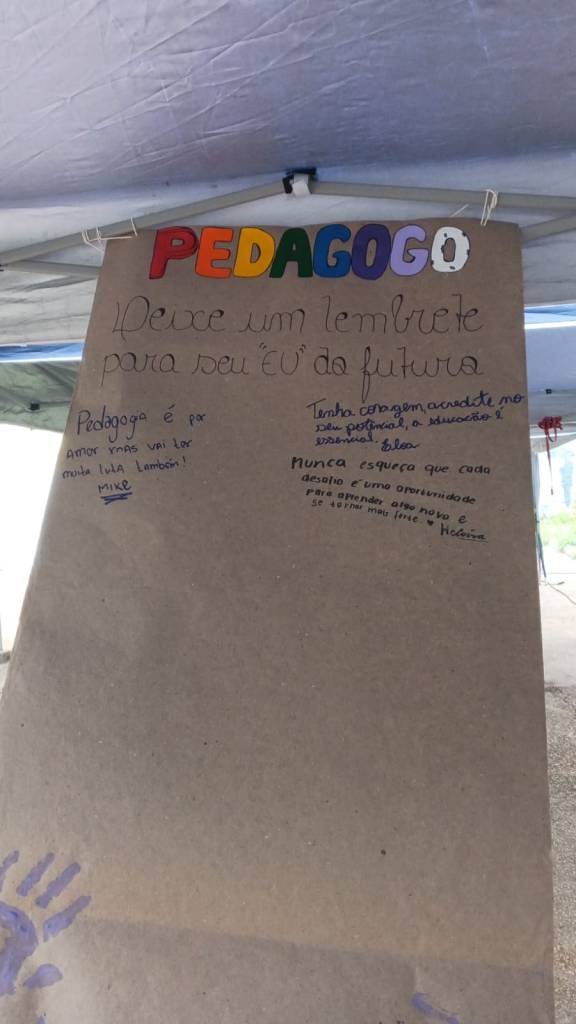 PEDAGOGO
Deixe um lembrete
para seu "EU" do futuro
Pedagogo é por
Amor mas vai ter
muita luta também!
MIKE
Tenha coragem, acredite no
seu potencial, a educação é
essencial. Eloa
Nunca esqueça que cada
desafio é uma oportunidade
para aprender algo novo e
se tornar mais forte. ♥ Heloisa